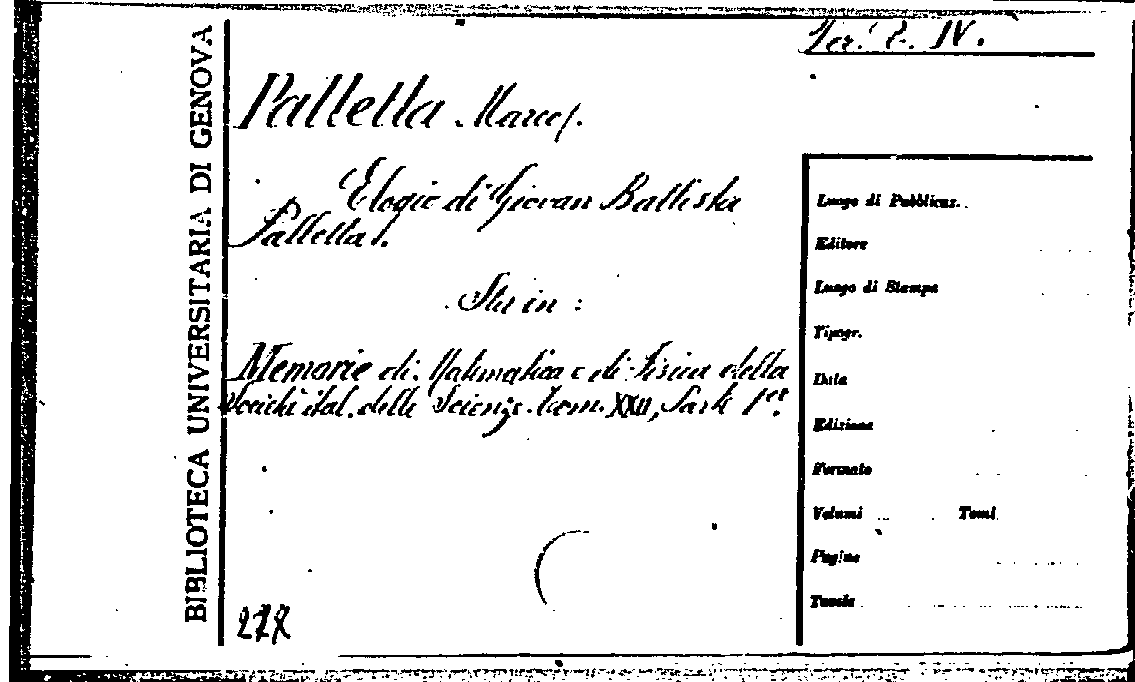 BIBLIOTECA UNIVERSITARIA DI GENOVA
Ser. E. IV.
Palletta Marco.
Elogio di Giovan Battista
Palletta.
Sta in :
Memorie di Matematica e di Fisica della
Società ital. delle Scienze. Tom. XXII, Parte 1ª.
Luogo di Pubblicaz.
Editore
Luogo di Stampa
Tipogr.
Data
Edizione
Formato
Volumi Tomi
Pagine
Tavole